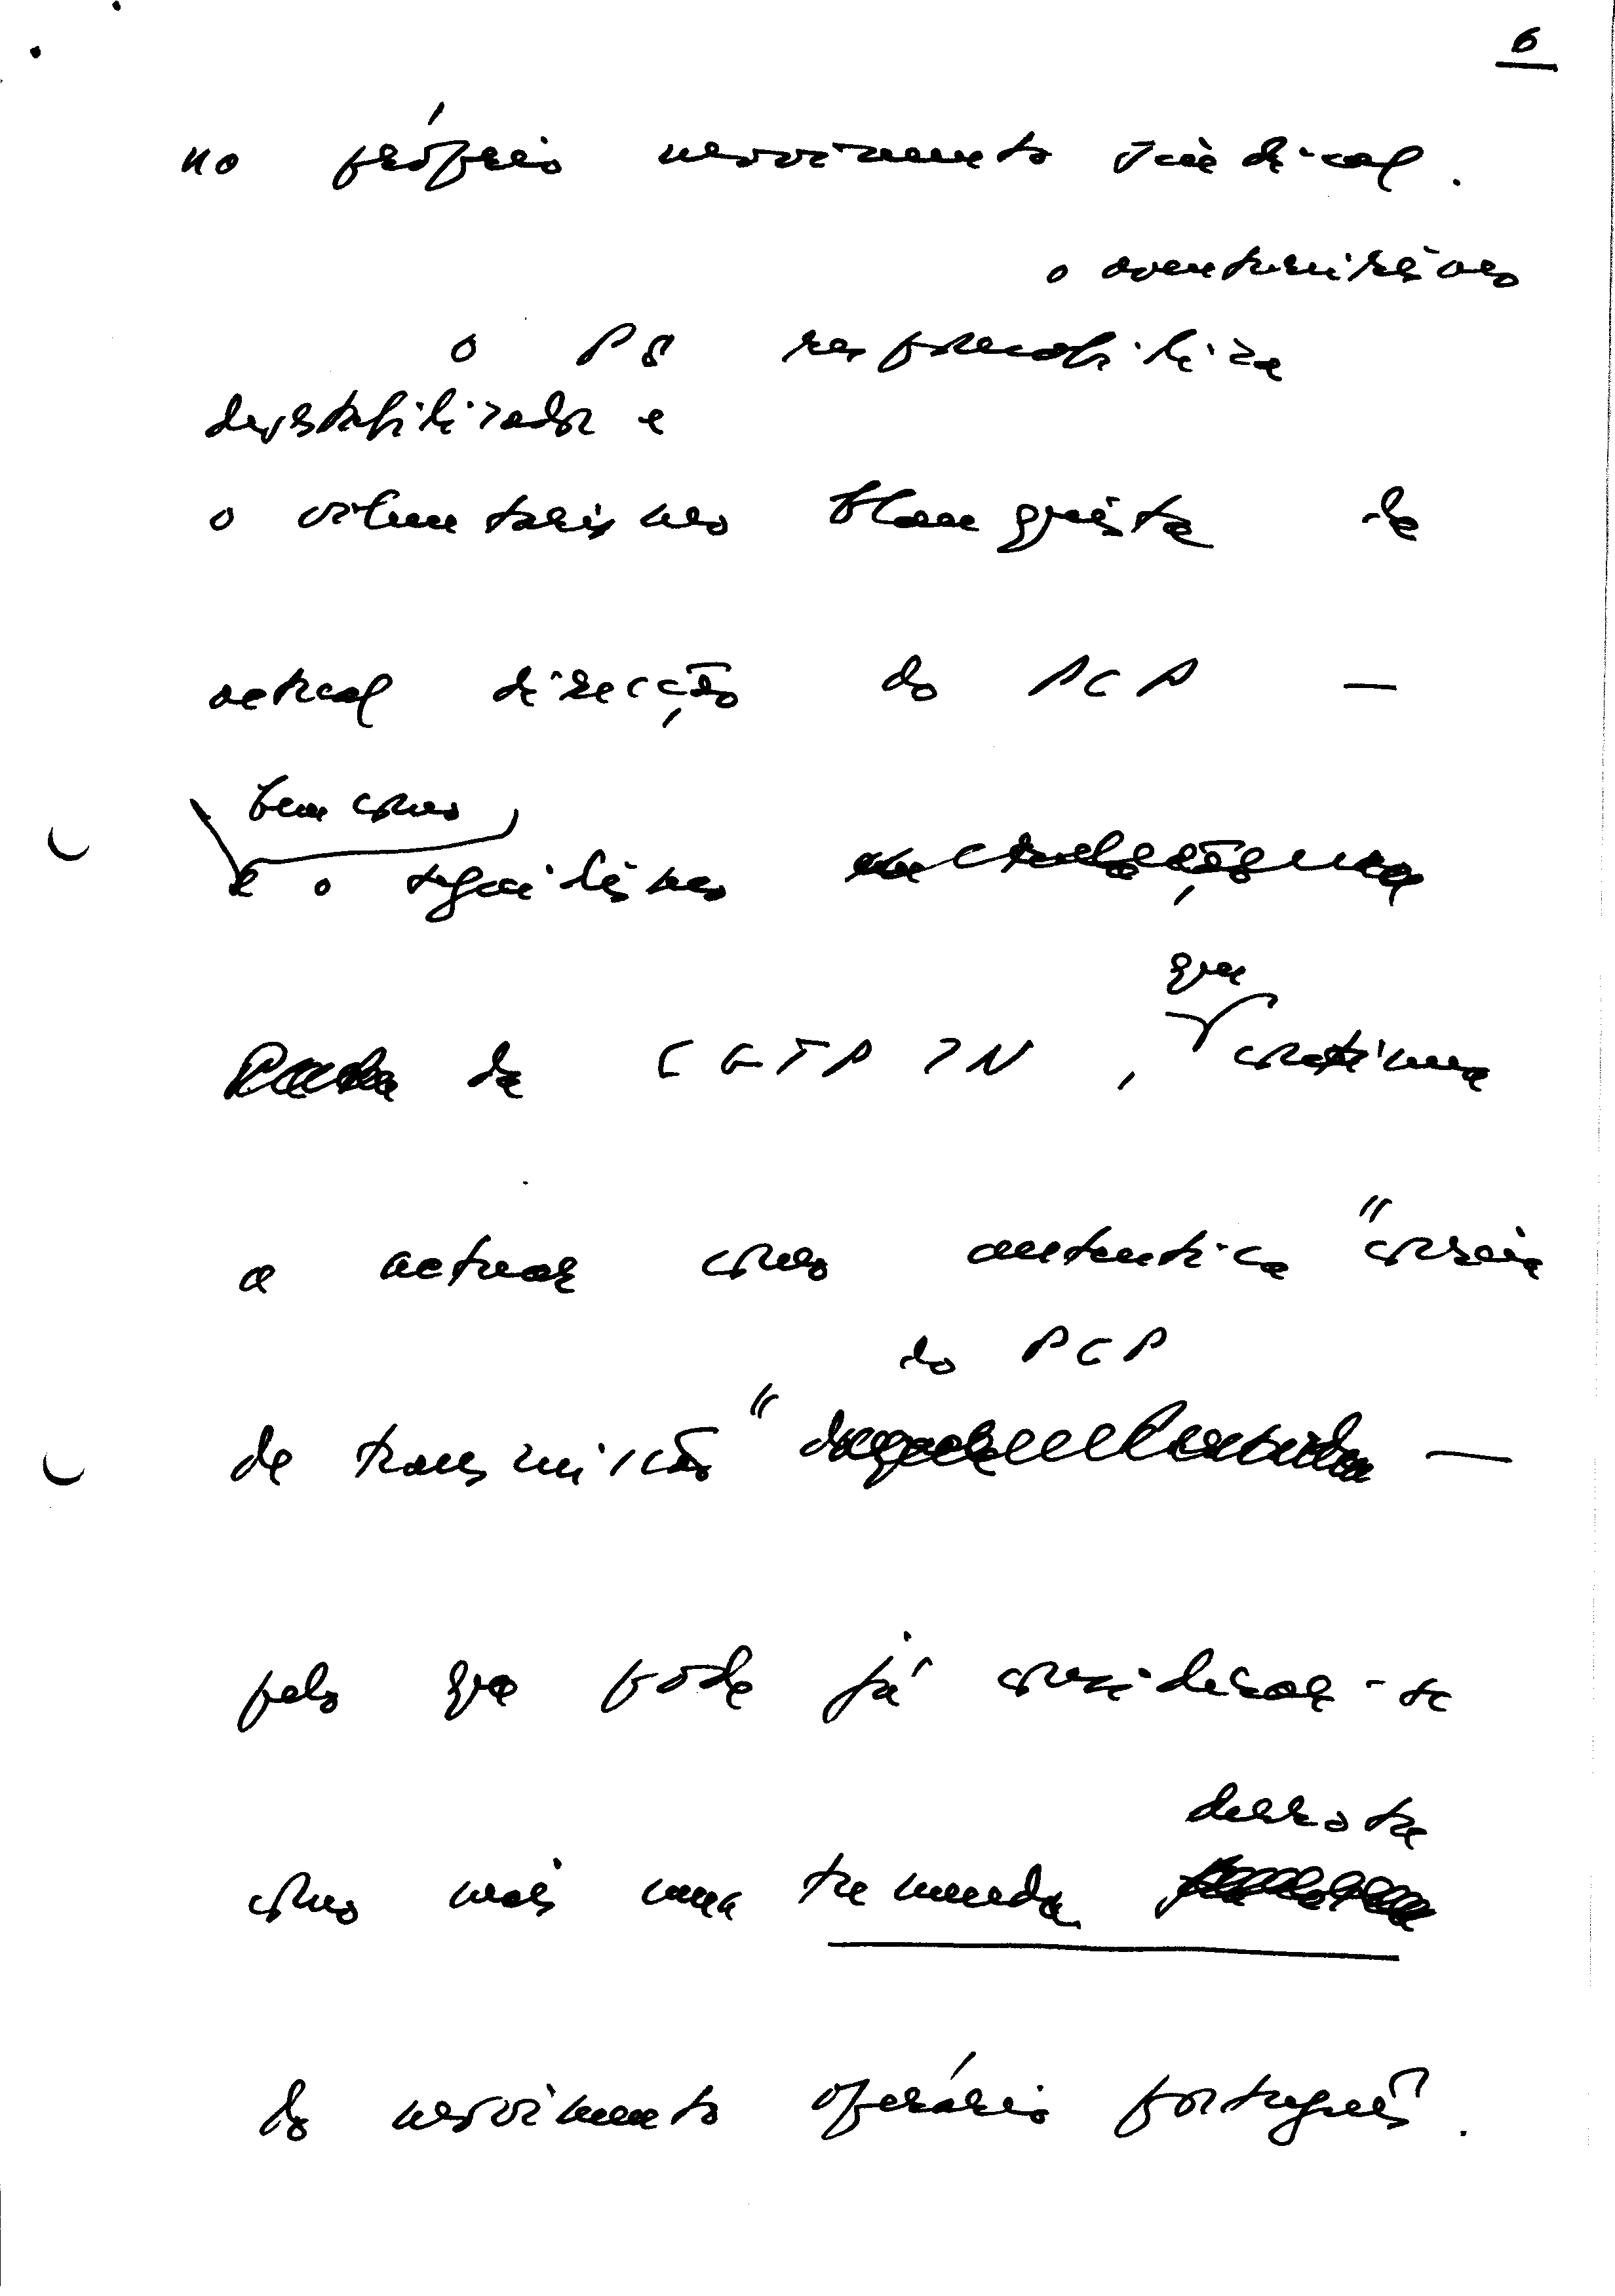 6
no próprio movimento sindical.
o aventureirismo
o PS responsabiliza
destabilizador e
o voluntarismo blanquista da
actual direcção do PCP —
bem como
e o seguidismo
que
da CGTP IN, continua
a actuar como autentica "correia
do PCP
de transmissão" —
pelo que pode já considerar-se
como mais uma tremenda
derrota
do movimento operário português.